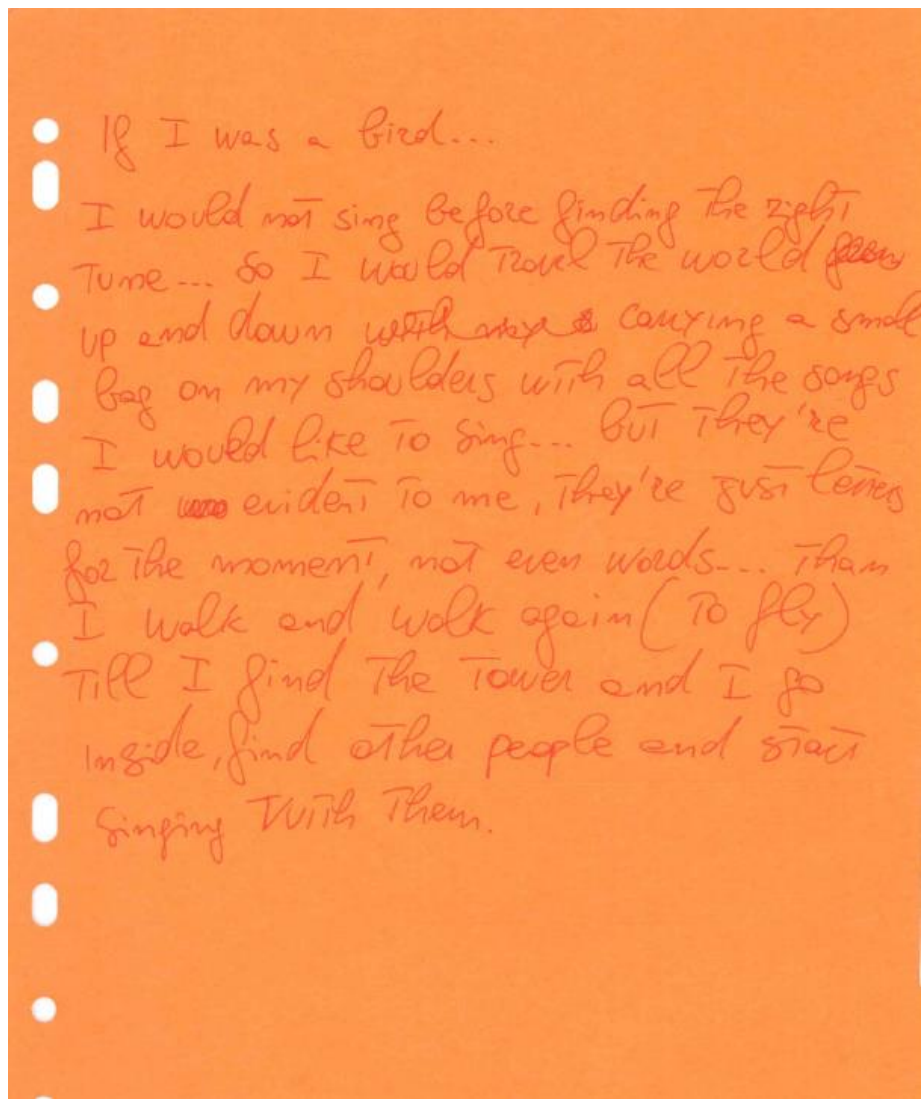 If I was a bird...
I would not sing before finding the right
tune... so I would travel the world
up and down carrying a small
bag on my shoulders with all the songs
I would like to sing... but they're
not evident to me, they're just letters
for the moment, not even words... than
I walk and walk again (to fly)
till I find the tower and I go
inside, find other people and start
singing with them.